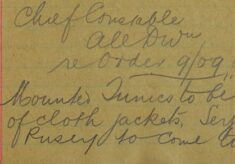 Chief Constable
All Dvn
re Order 9/09
Mounted Tunics to be
of cloth jackets, Ser
to come